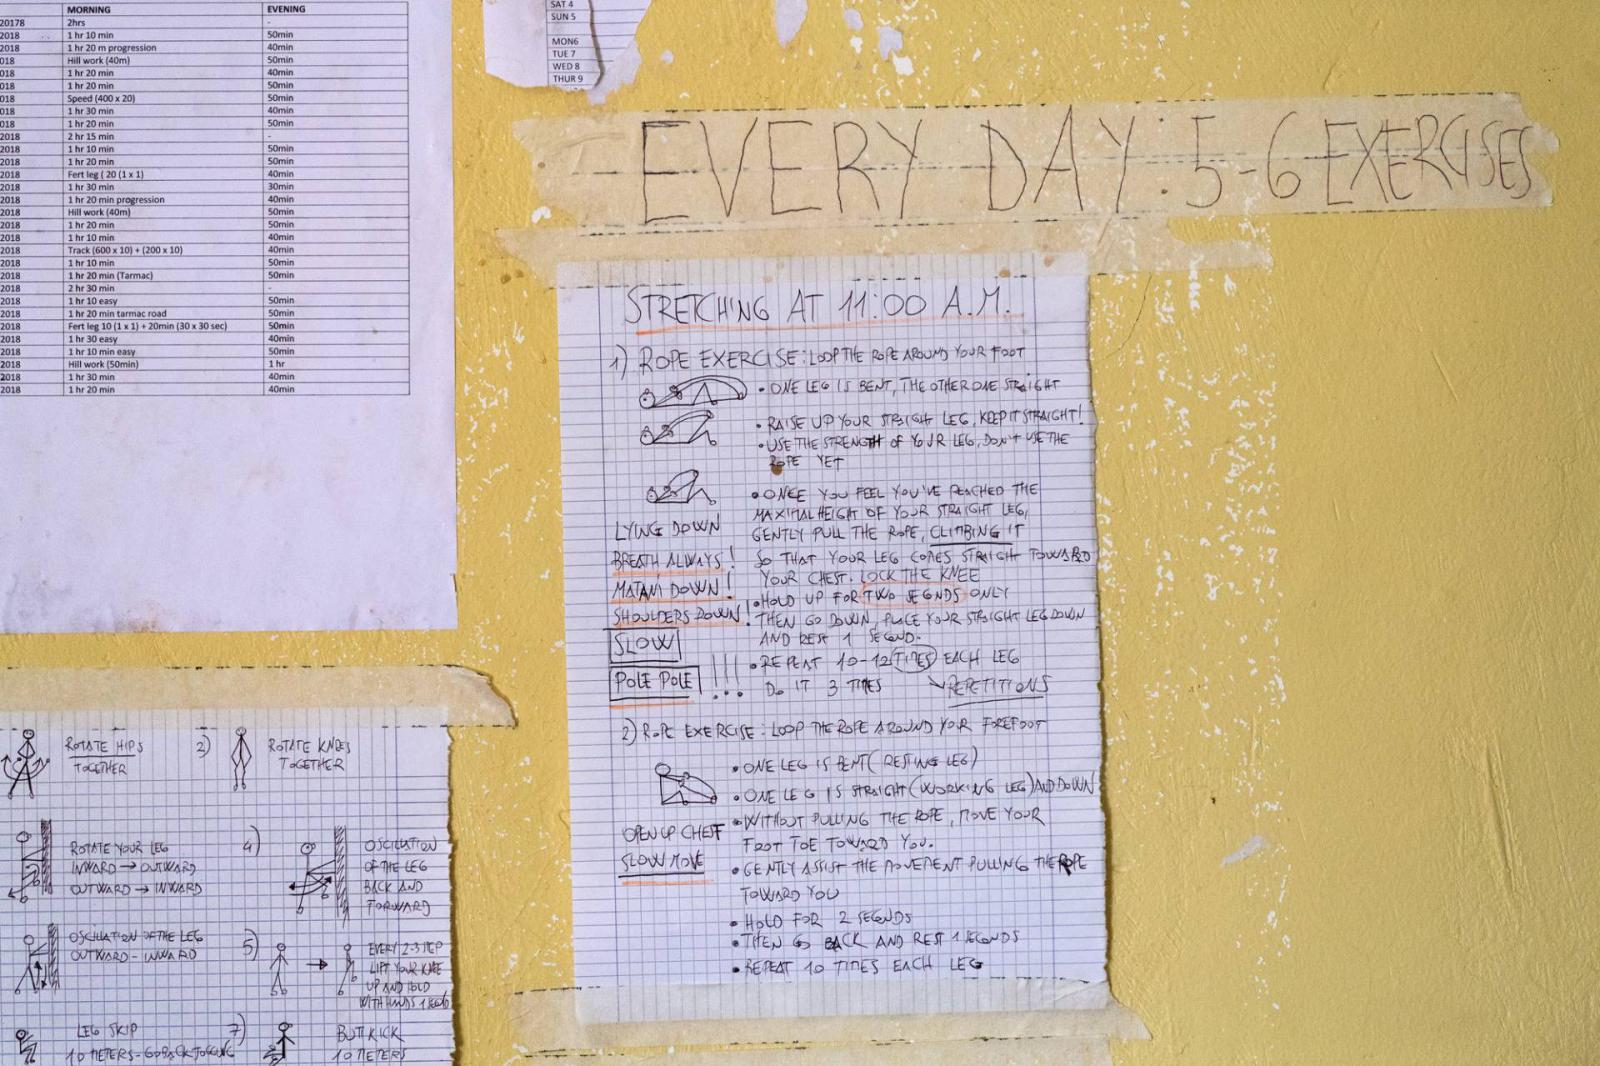 MORNING EVENING
20178 2hrs -
2018 1 hr 10 min 50min
018 1 hr 20 m progression 40min
018 Hill work (40m) 50min
018 1 hr 20 min 40min
018 1 hr 20 min 50min
018 Speed (400 x 20) 50min
018 1 hr 30 min 40min
018 1 hr 20 min 50min
2018 2 hr 15 min -
2018 1 hr 10 min 50min
2018 1 hr 20 min 50min
2018 Fert leg ( 20 (1 x 1) 40min
2018 1 hr 30 min 30min
2018 1 hr 20 min progression 40min
2018 Hill work (40m) 50min
2018 1 hr 20 min 50min
2018 1 hr 10 min 40min
2018 Track (600 x 10) + (200 x 10) 40min
2018 1 hr 10 min 50min
2018 1 hr 20 min (Tarmac) 50min
2018 2 hr 30 min -
2018 1 hr 10 easy 50min
2018 1 hr 20 min tarmac road 50min
2018 Fert leg 10 (1 x 1) + 20min (30 x 30 sec) 50min
2018 1 hr 30 easy 40min
2018 1 hr 10 min easy 50min
2018 Hill work (50min) 1 hr
2018 1 hr 30 min 40min
2018 1 hr 20 min 40min
SAT 4
SUN 5
MON6
TUE 7
WED 8
THUR 9
EVERY DAY: 5-6 EXERCISES
STRETCHING AT 11:00 A.M.
1) ROPE EXERCISE: LOOP THE ROPE AROUND YOUR FOOT
• ONE LEG IS BENT, THE OTHER ONE STRAIGHT
• RAISE UP YOUR STRAIGH LEG, KEEP IT STRAIGHT!
• USE THE STRENGTH OF YOUR LEG, DON'T USE THE
ROPE YET
• ONCE YOU FEEL YOU'VE REACHED THE
MAXIMAL HEIGHT OF YOUR STRAIGHT LEG,
GENTLY PULL THE ROPE, CLIMBING IT
SO THAT YOUR LEG COMES STRAIGHT TOWARD
YOUR CHEST. LOCK THE KNEE
• HOLD UP FOR TWO SECONDS ONLY
THEN GO DOWN, PLACE YOUR STRAIGHT LEG DOWN
AND REST 1 SECOND.
• REPEAT 10-12 TIMES EACH LEG
DO IT 3 TIMES REPETITIONS
LYING DOWN
BREATH ALWAYS!
MATAM DOWN!
SHOULDERS DOWN!
SLOW
POLE POLE !!!
2) ROPE EXERCISE: LOOP THE ROPE AROUND YOUR FOREFOOT
• ONE LEG IS BENT (RESTING LEG)
• ONE LEG IS STRAIGHT (WORKING LEG) AND DOWN
• WITHOUT PULLING THE ROPE, MOVE YOUR
FOOT TOE TOWARD YOU.
• GENTLY ASSIST THE MOVEMENT PULLING THE ROPE
TOWARD YOU
• HOLD FOR 2 SECONDS
• THEN GO BACK AND REST 1 SECONDS
• REPEAT 10 TIMES EACH LEG
OPEN UP CHEST
SLOW MOVE
ROTATE HIPS
TOGETHER
2) ROTATE KNEES
TOGETHER
ROTATE YOUR LEG
INWARD → OUTWARD
OUTWARD → INWARD
4) OSCILLATION
OF THE LEG
BACK AND
FORWARD
OSCILLATION OF THE LEG
OUTWARD - INWARD
5) EVERY 2-3 STEP
LIFT YOUR KNEE
UP AND HOLD
WITH HANDS 1
LEG SKIP
10 METERS - GO BACK JOGGING
7) BUTT KICK
10 METERS